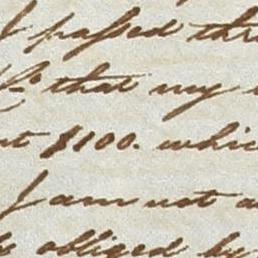 I passed thr
that my
nt $100. whic
I am not a
be obliged by